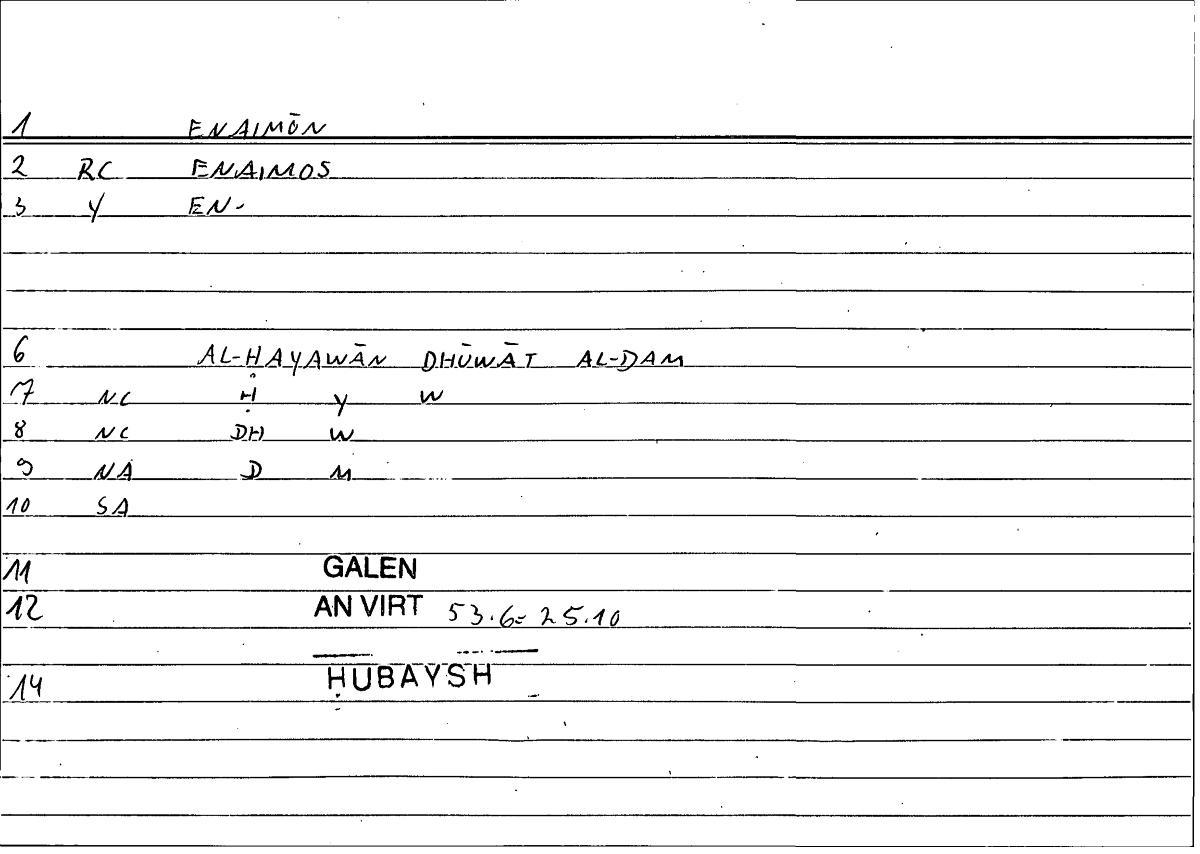 1 ENAIMŌN
2 RC ENAIMOS
3 Y EN-
6 AL-ḤAYAWĀN DHŪWĀT AL-DAM
7 NC Ḥ Y W
8 NC DH W
9 NA D M
10 SA
11 GALEN
12 AN VIRT 53.6= 25.10
14 ḤUBAYSH